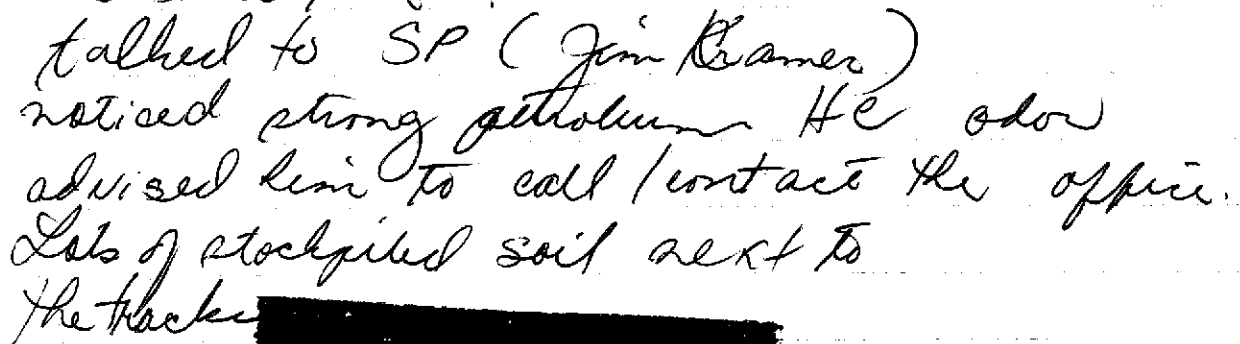 talked to SP (Jim Kramer)
noticed strong petroleum HC odor
advised him to call / contact the office.
Lots of stockpiled soil next to
the tracks